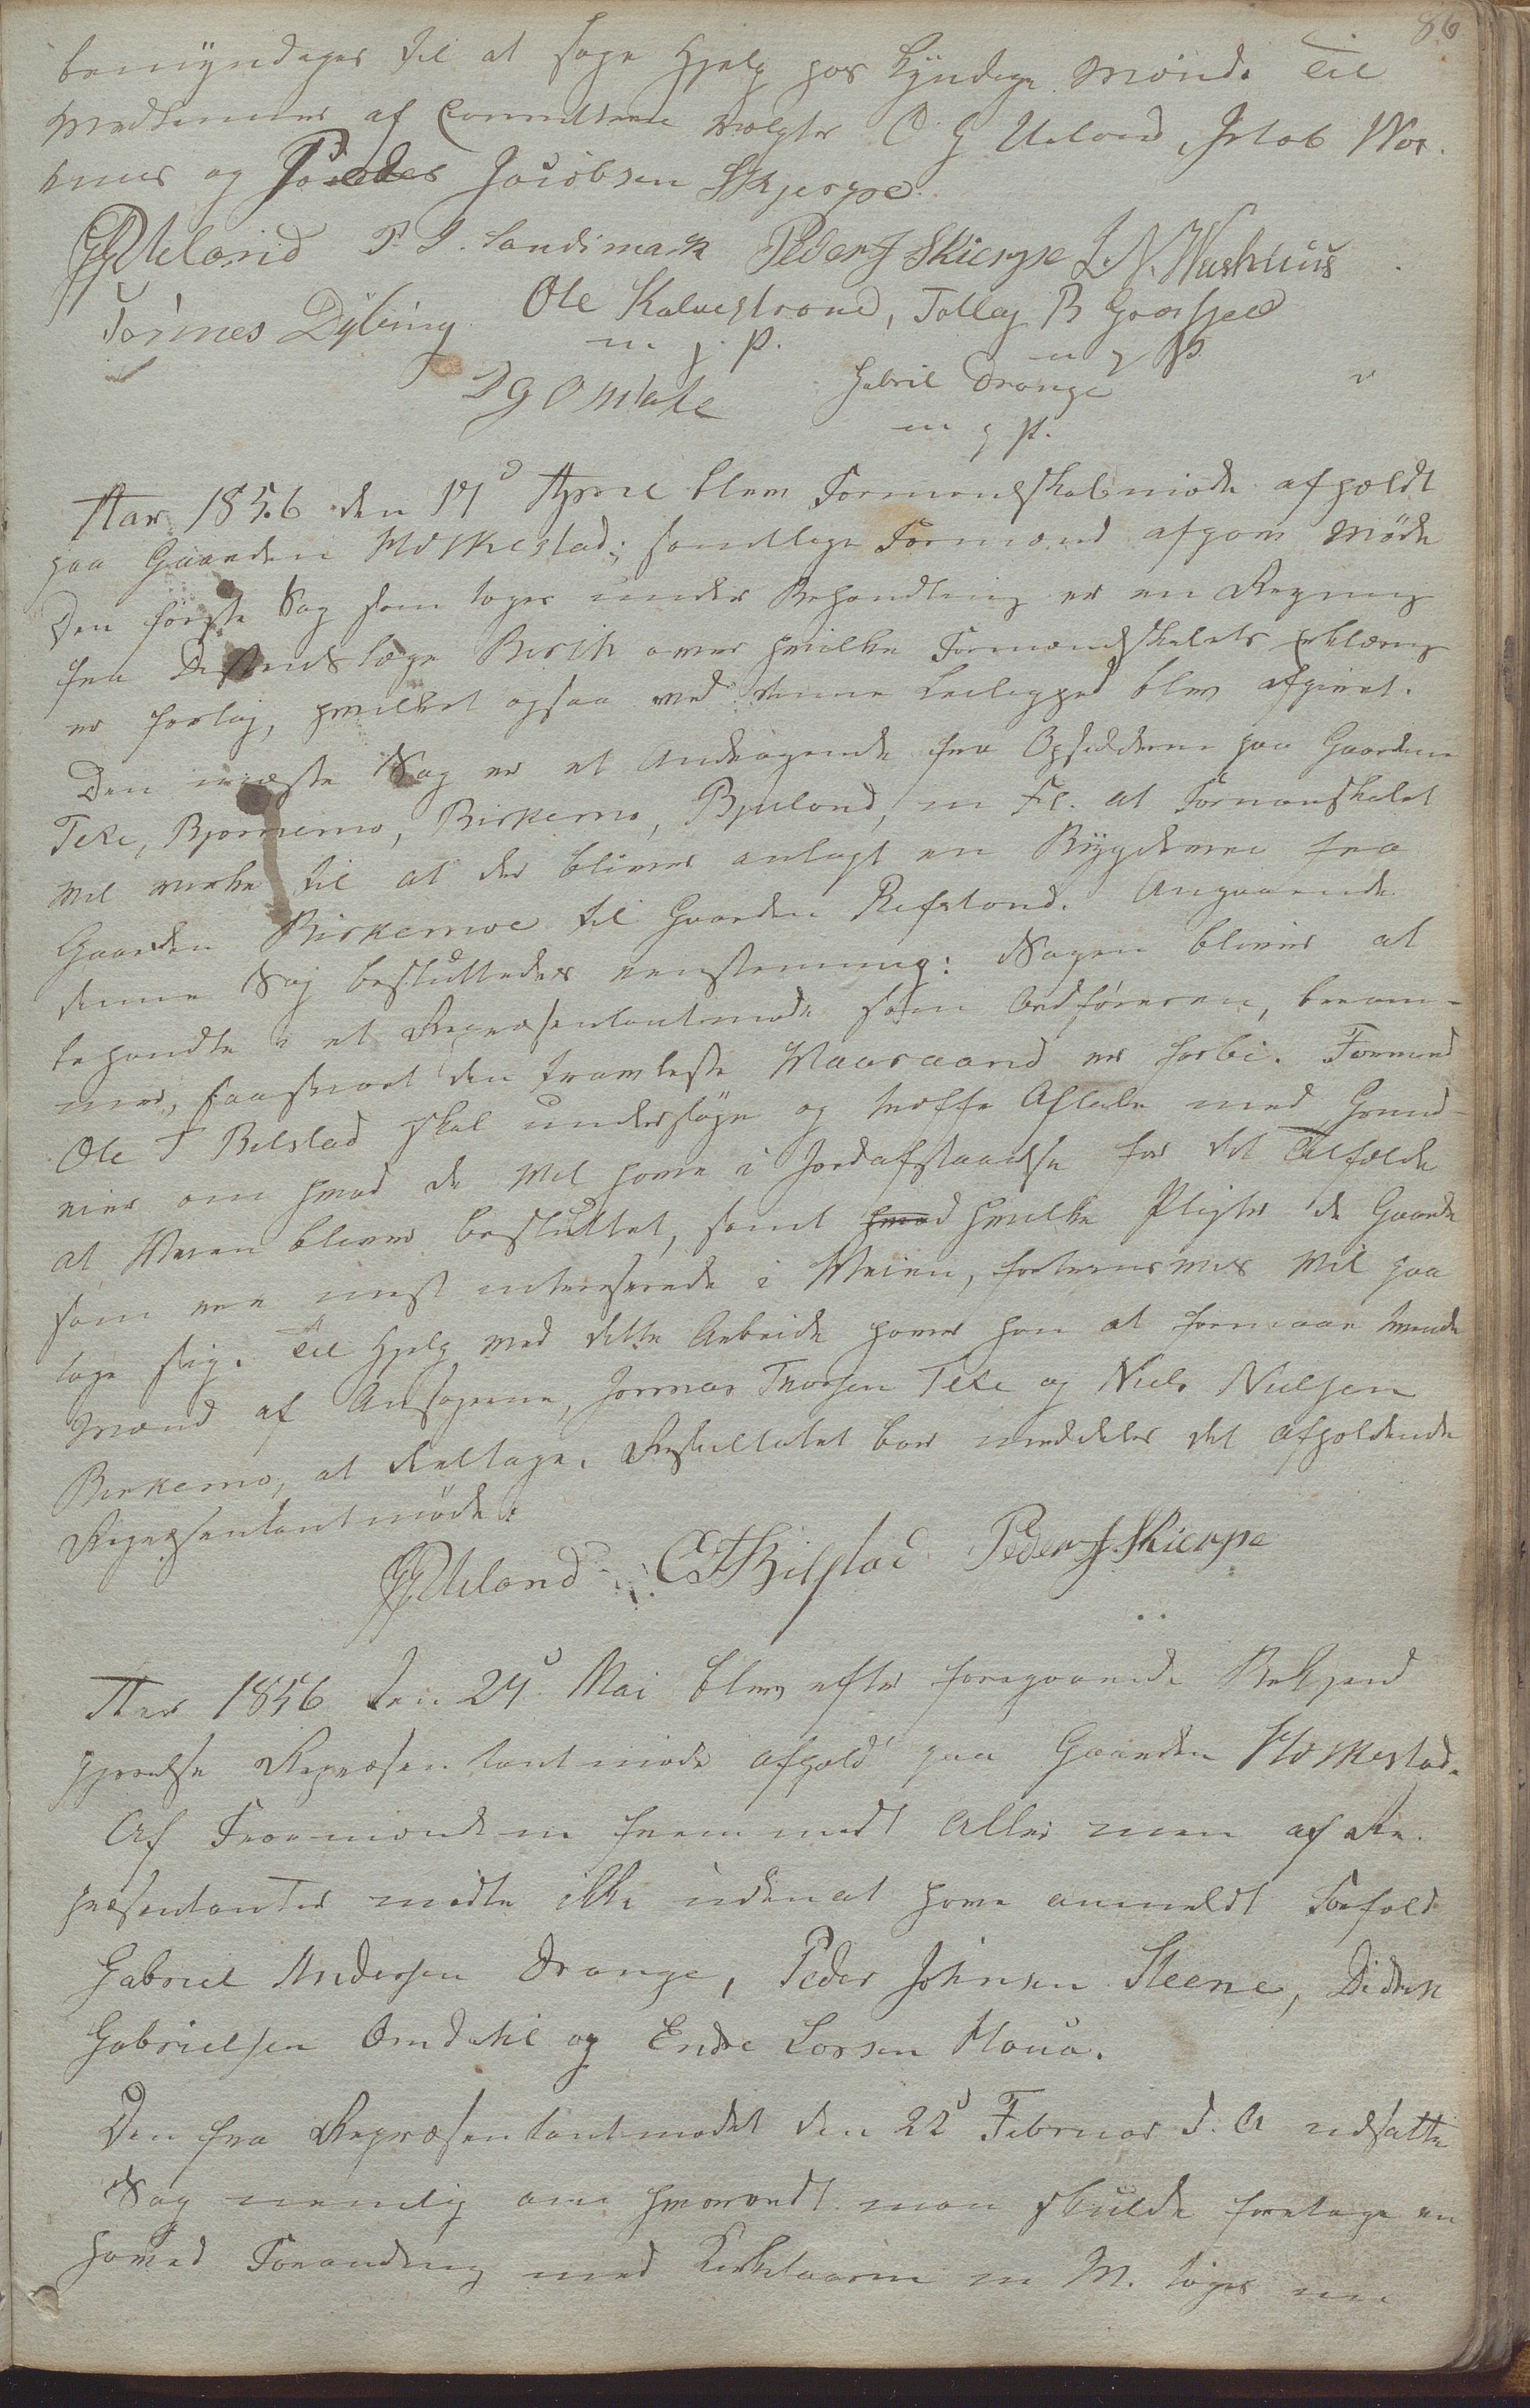 86
bemyndiges til at søge Hjelp hos kyndige Mænd. Til
Medlemmer af Committeen valgtes O G Ueland, Jakob
og Peder Jacobsen Skjerpe.
OGUeland P. J. Sandsmark Peder J Skierpe L. N. Washuus
Tønnes Dybing Ole Kalvestrand, Tollag B Grøsfjeld
m. p. P. m p P
D G Omdahl Gabril Drange
m p P.
Aar 1856 den 14d April blev Formandskabsmøde afholdt
paa Gaarden Hovkestad; samtlige Formænd afgave Møde
Den første Sag som toges under Behandling er en Regning
fra Distriktslæge Birch over hvilke Formandskabets Erklæring
er forlagt, hvilket ogsaa ved denne Leilighed blev afgivet.
Den næste Sag er et Andragende fra Opsidderne paa Gaardene
Teke, Bjørnemo, Birkemo, Bjuland, m Fl. at Formanskabet
vil virke til at der bliver anlagt en Bygdevei fra
Gaarden Birkemoe til Gaarden Refsland. Angaaende
denne Sag besluttedes eenstemmig: Sagen bliver at
behandle i et Repræsentantmøde som Ordføreren, beram-
mer, saasnart den travleste Vaaraand er forbi. Formand
Ole T Bilstad skal undersøge og træffe Aftale med Grund-
eier om hvad de vil have i Jordafstaaelse for det Tilfælde
at Veien bliver besluttet, samt hvad hvilke Pligter de Gaarde
som ere mest interesserede i Veien, fortrinsvis vil paa
tage sig. Til Hjelp med dette Arbeide haver han at formaae tvende
Mænd af Ansøgerne, Jonnas Thorsen Teke og Niels Nielsen
Birkemo, at deeltage. Resultatet bør meddeles det afholdende
Repræsentantmøde.
OGUeland OTBilstad Peder J. Skierpe
Aar 1856 den 24d Mai blev efter foregaaende Bekjend
gjørelse Repræsentantmøde afhold paa Gaarden Hovkestad.
Af Formændene fremmødt Alle men af Re-
præsentanter mødte ikke uden at have anmeldt Forfald
Gabriel Andersen Drange, Peder Johnsen Steene, Didrik
Gabrielsen Omdahl og Endre Larsen Haua.
Den fra Repræsentantmødet den 22d Februar d. A udsatte
Sag nemlig om hvorvidt man skulde foretage en
Forandring med Kirketaarn m M. toges nu